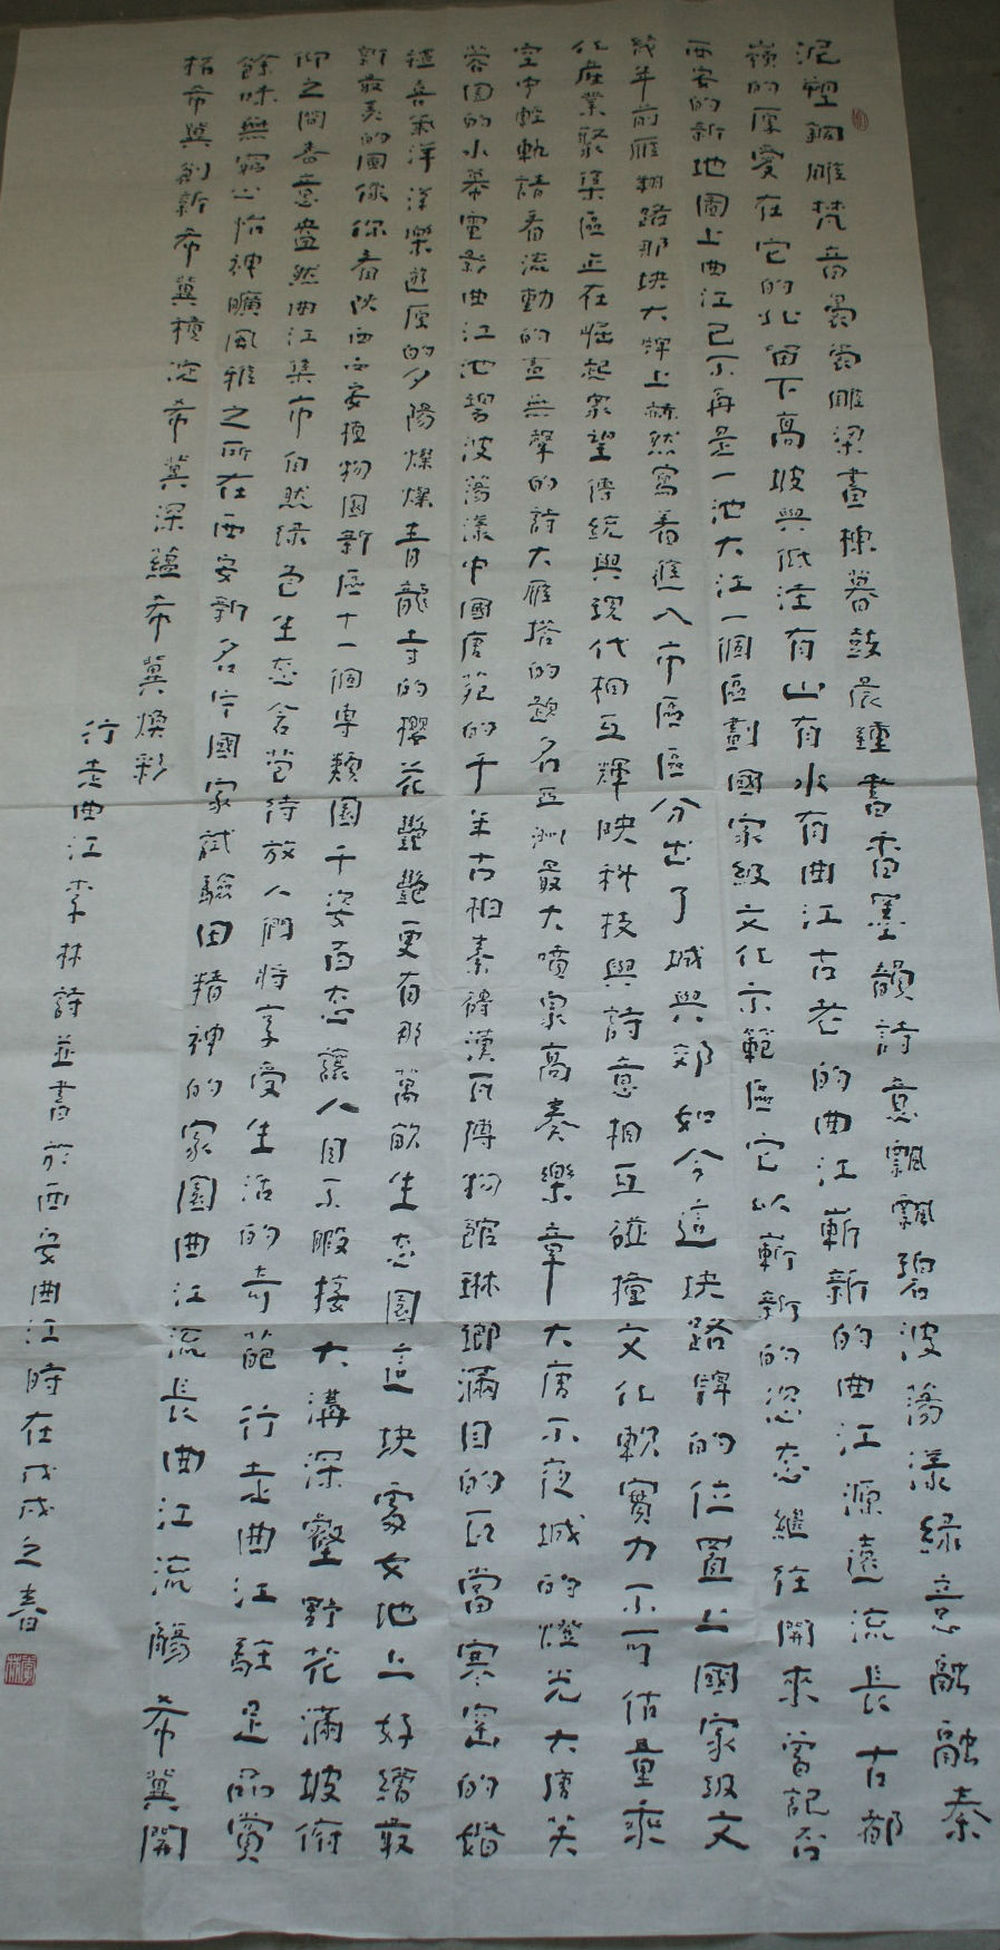 泥塑銅雕梵音裊裊雕梁畫棟暮鼓晨鍾書香墨韻詩意飄飄碧波蕩漾綠意融融秦
嶺的厚愛在它的北留下高坡與低洼有山有水有曲江古老的曲江嶄新的曲江源遠流長古都
西安的新地圖上曲江已不再是一池大江一個區劃國家級文化示範區它以嶄新的姿態繼往開來曾記否
幾年前雁翔路那块大牌上赫然寫着進入市區區分出了城與郊如今這块路牌的位置上國家級文
化産業聚集區正在崛起衆望傳統與現代相互輝映科技與詩意相互碰撞文化軟實力不可估量乘
空中輕軌請看流動的畫無聲的詩大雁塔的題名亞洲最大噴泉高奏樂章大唐不夜城的燈光大唐芙
蓉園的水幕電影曲江池碧波蕩漾中國唐苑的千年古柏秦磚漢瓦博物館琳瑯滿目的瓦當寒窑的婚
禮喜氣洋洋樂遊原的夕陽燦燦青龍寺的櫻花艷艷更有那萬畝生态園這块處女地上好繪最
新最美的圖你你看陕西西安植物園新區十一個専類園千姿百态讓人目不暇接大溝深壑野花滿坡俯
仰之間春意盎然曲江集市自然绿色生态含苞待放人們将享受生活的奇葩行走曲江駐足品賞
餘味無窮心怡神曠風雅之所在西安新名片國家試驗田精神的家園曲江流長曲江流觴希冀開
拓希冀創新希冀積淀希冀深蕴希冀焕彩
行走曲江李林詩並書於西安曲江時在戊戌之春